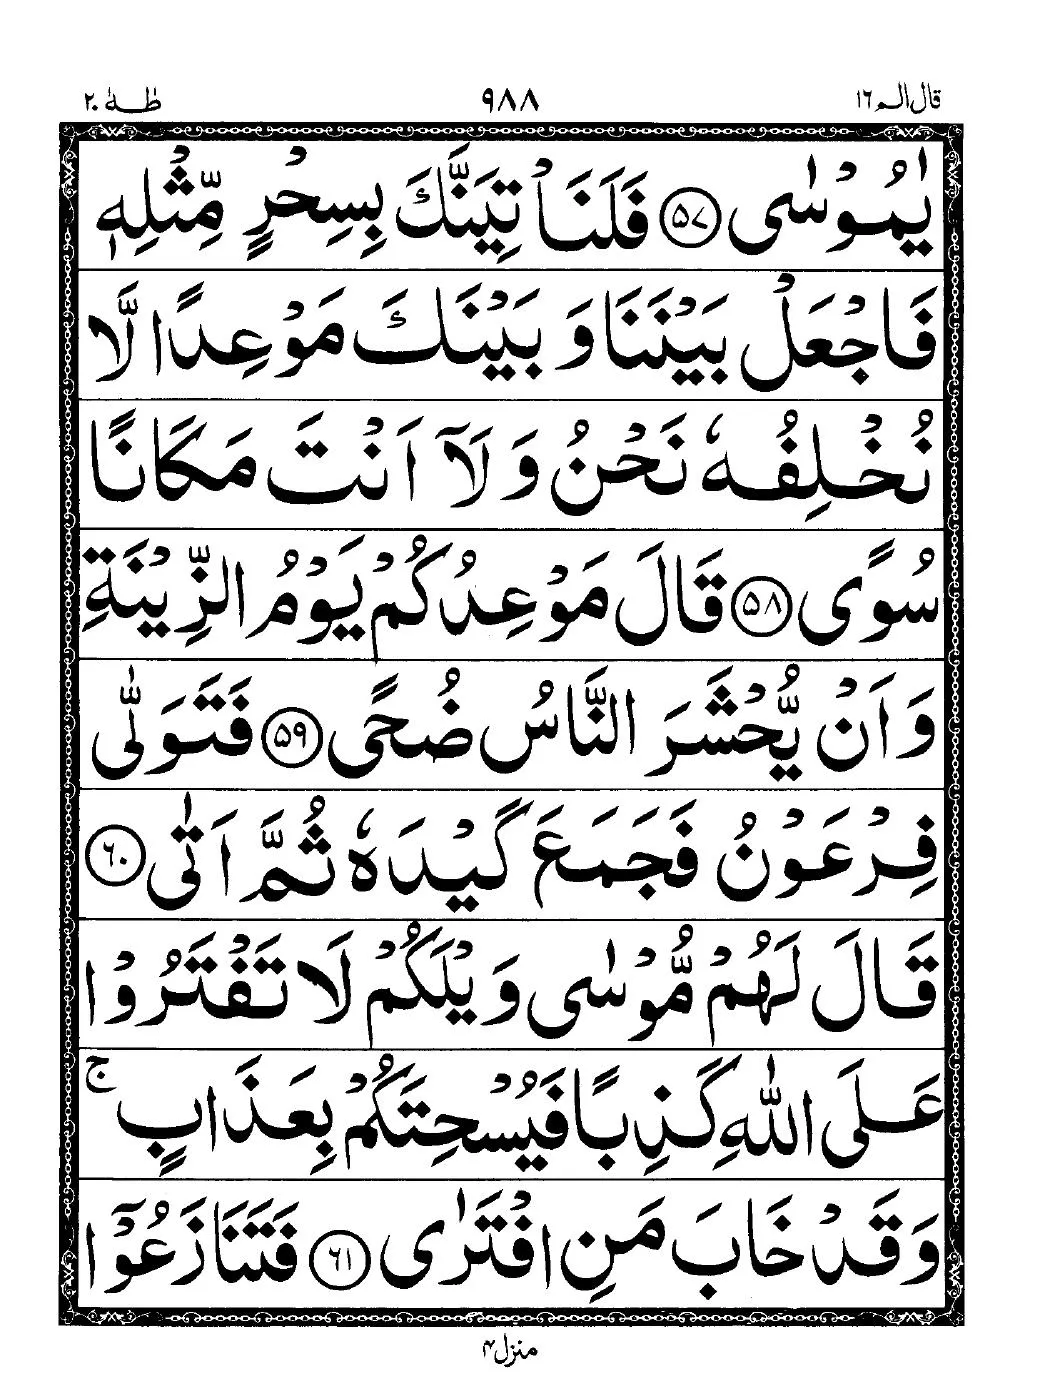 قال الم ١٦
٩٨٨
طٰهٰ ٢٠
يٰمُوْسٰى ﴿۵۷﴾ فَلَنَاْتِيَنَّكَ بِسِحْرٍ مِّثْلِهٖ
فَاجْعَلْ بَيْنَنَا وَ بَيْنَكَ مَوْعِدًا لَّا
نُخْلِفُهٗ نَحْنُ وَ لَاۤ اَنْتَ مَكَانًا
سُوًى ﴿۵۸﴾ قَالَ مَوْعِدُكُمْ يَوْمُ الزِّيْنَةِ
وَ اَنْ يُّحْشَرَ النَّاسُ ضُحًى ﴿۵۹﴾ فَتَوَلّٰى
فِرْعَوْنُ فَجَمَعَ كَيْدَهٗ ثُمَّ اَتٰى ﴿۶۰﴾
قَالَ لَهُمْ مُّوْسٰى وَيْلَكُمْ لَا تَفْتَرُوْا
عَلَى اللّٰهِ كَذِبًا فَيُسْحِتَكُمْ بِعَذَابٍ ۚ
وَ قَدْ خَابَ مَنِ افْتَرٰى ﴿۶۱﴾ فَتَنَازَعُوْۤا
منزل ۴